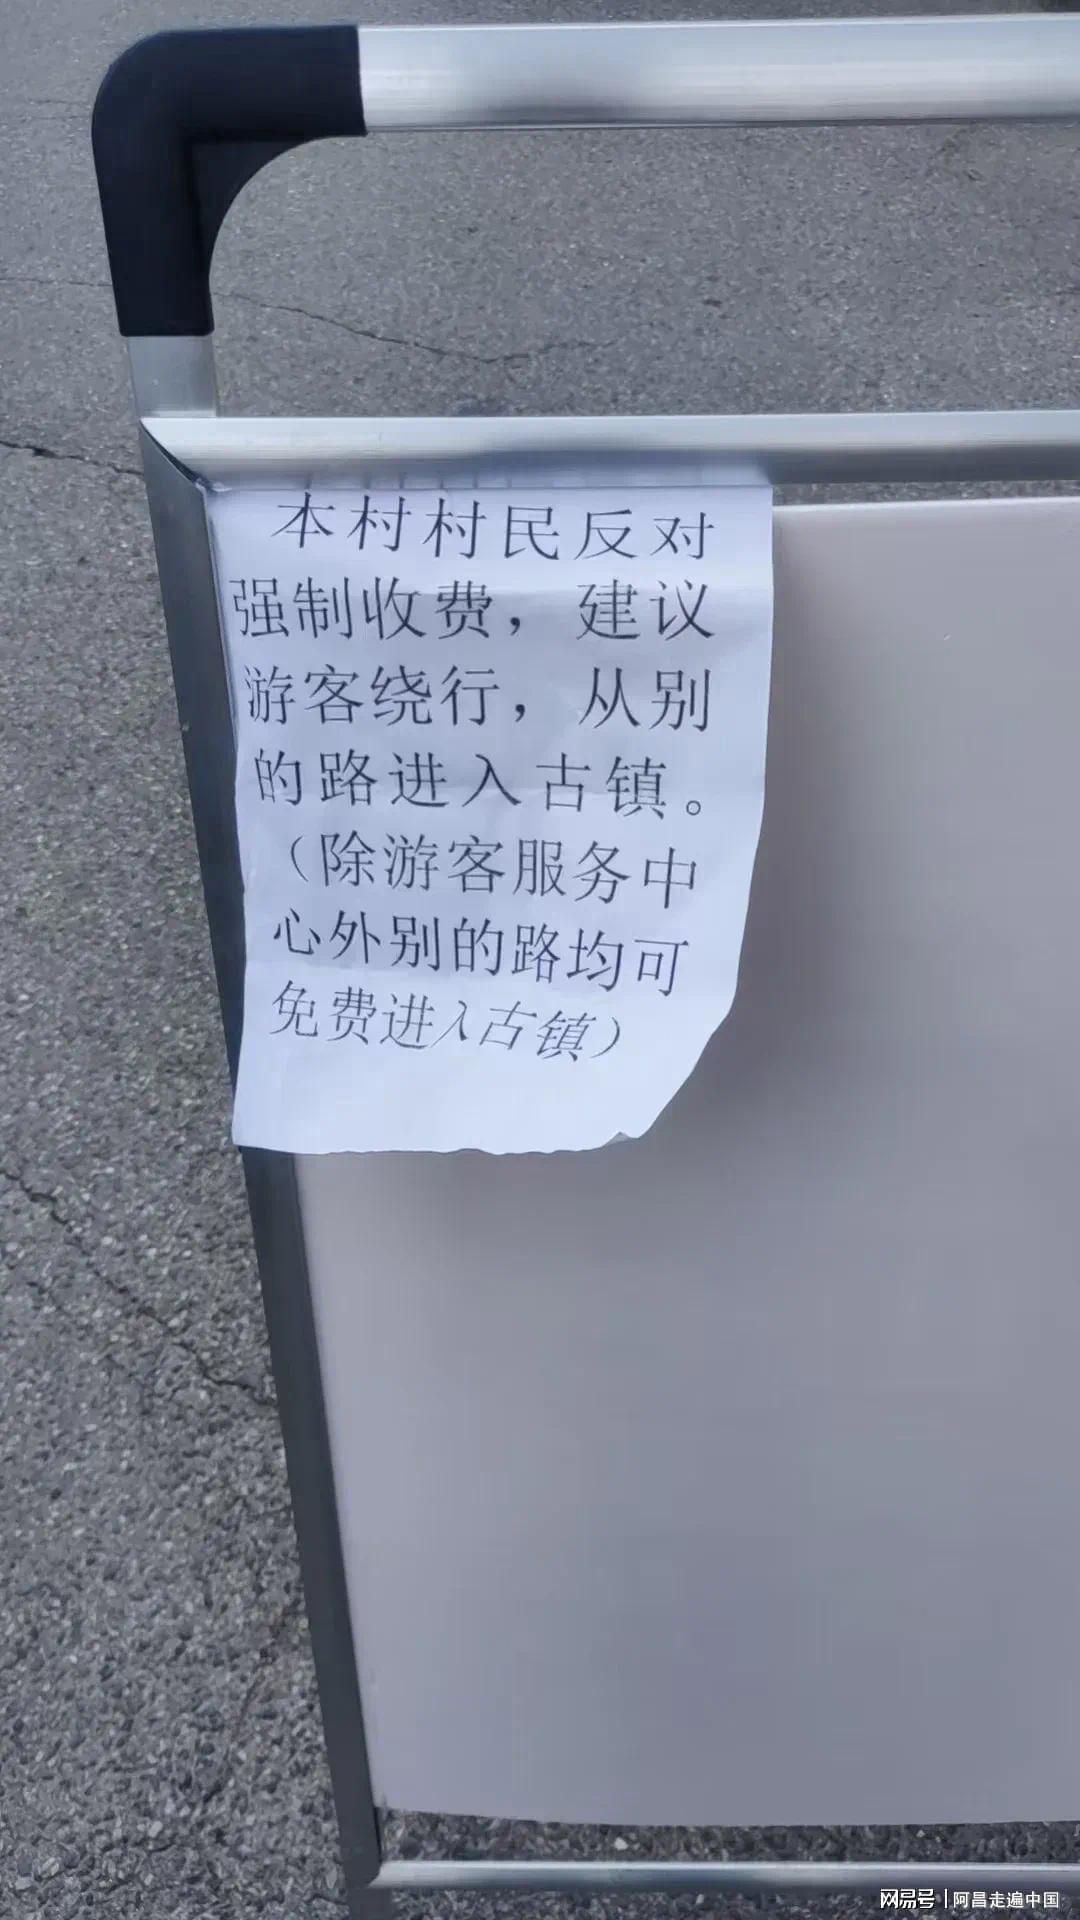 本村村民反对
强制收费，建议
游客绕行，从别
的路进入古镇。
（除游客服务中
心外别的路均可
免费进入古镇）
网易号 | 阿昌走遍中国